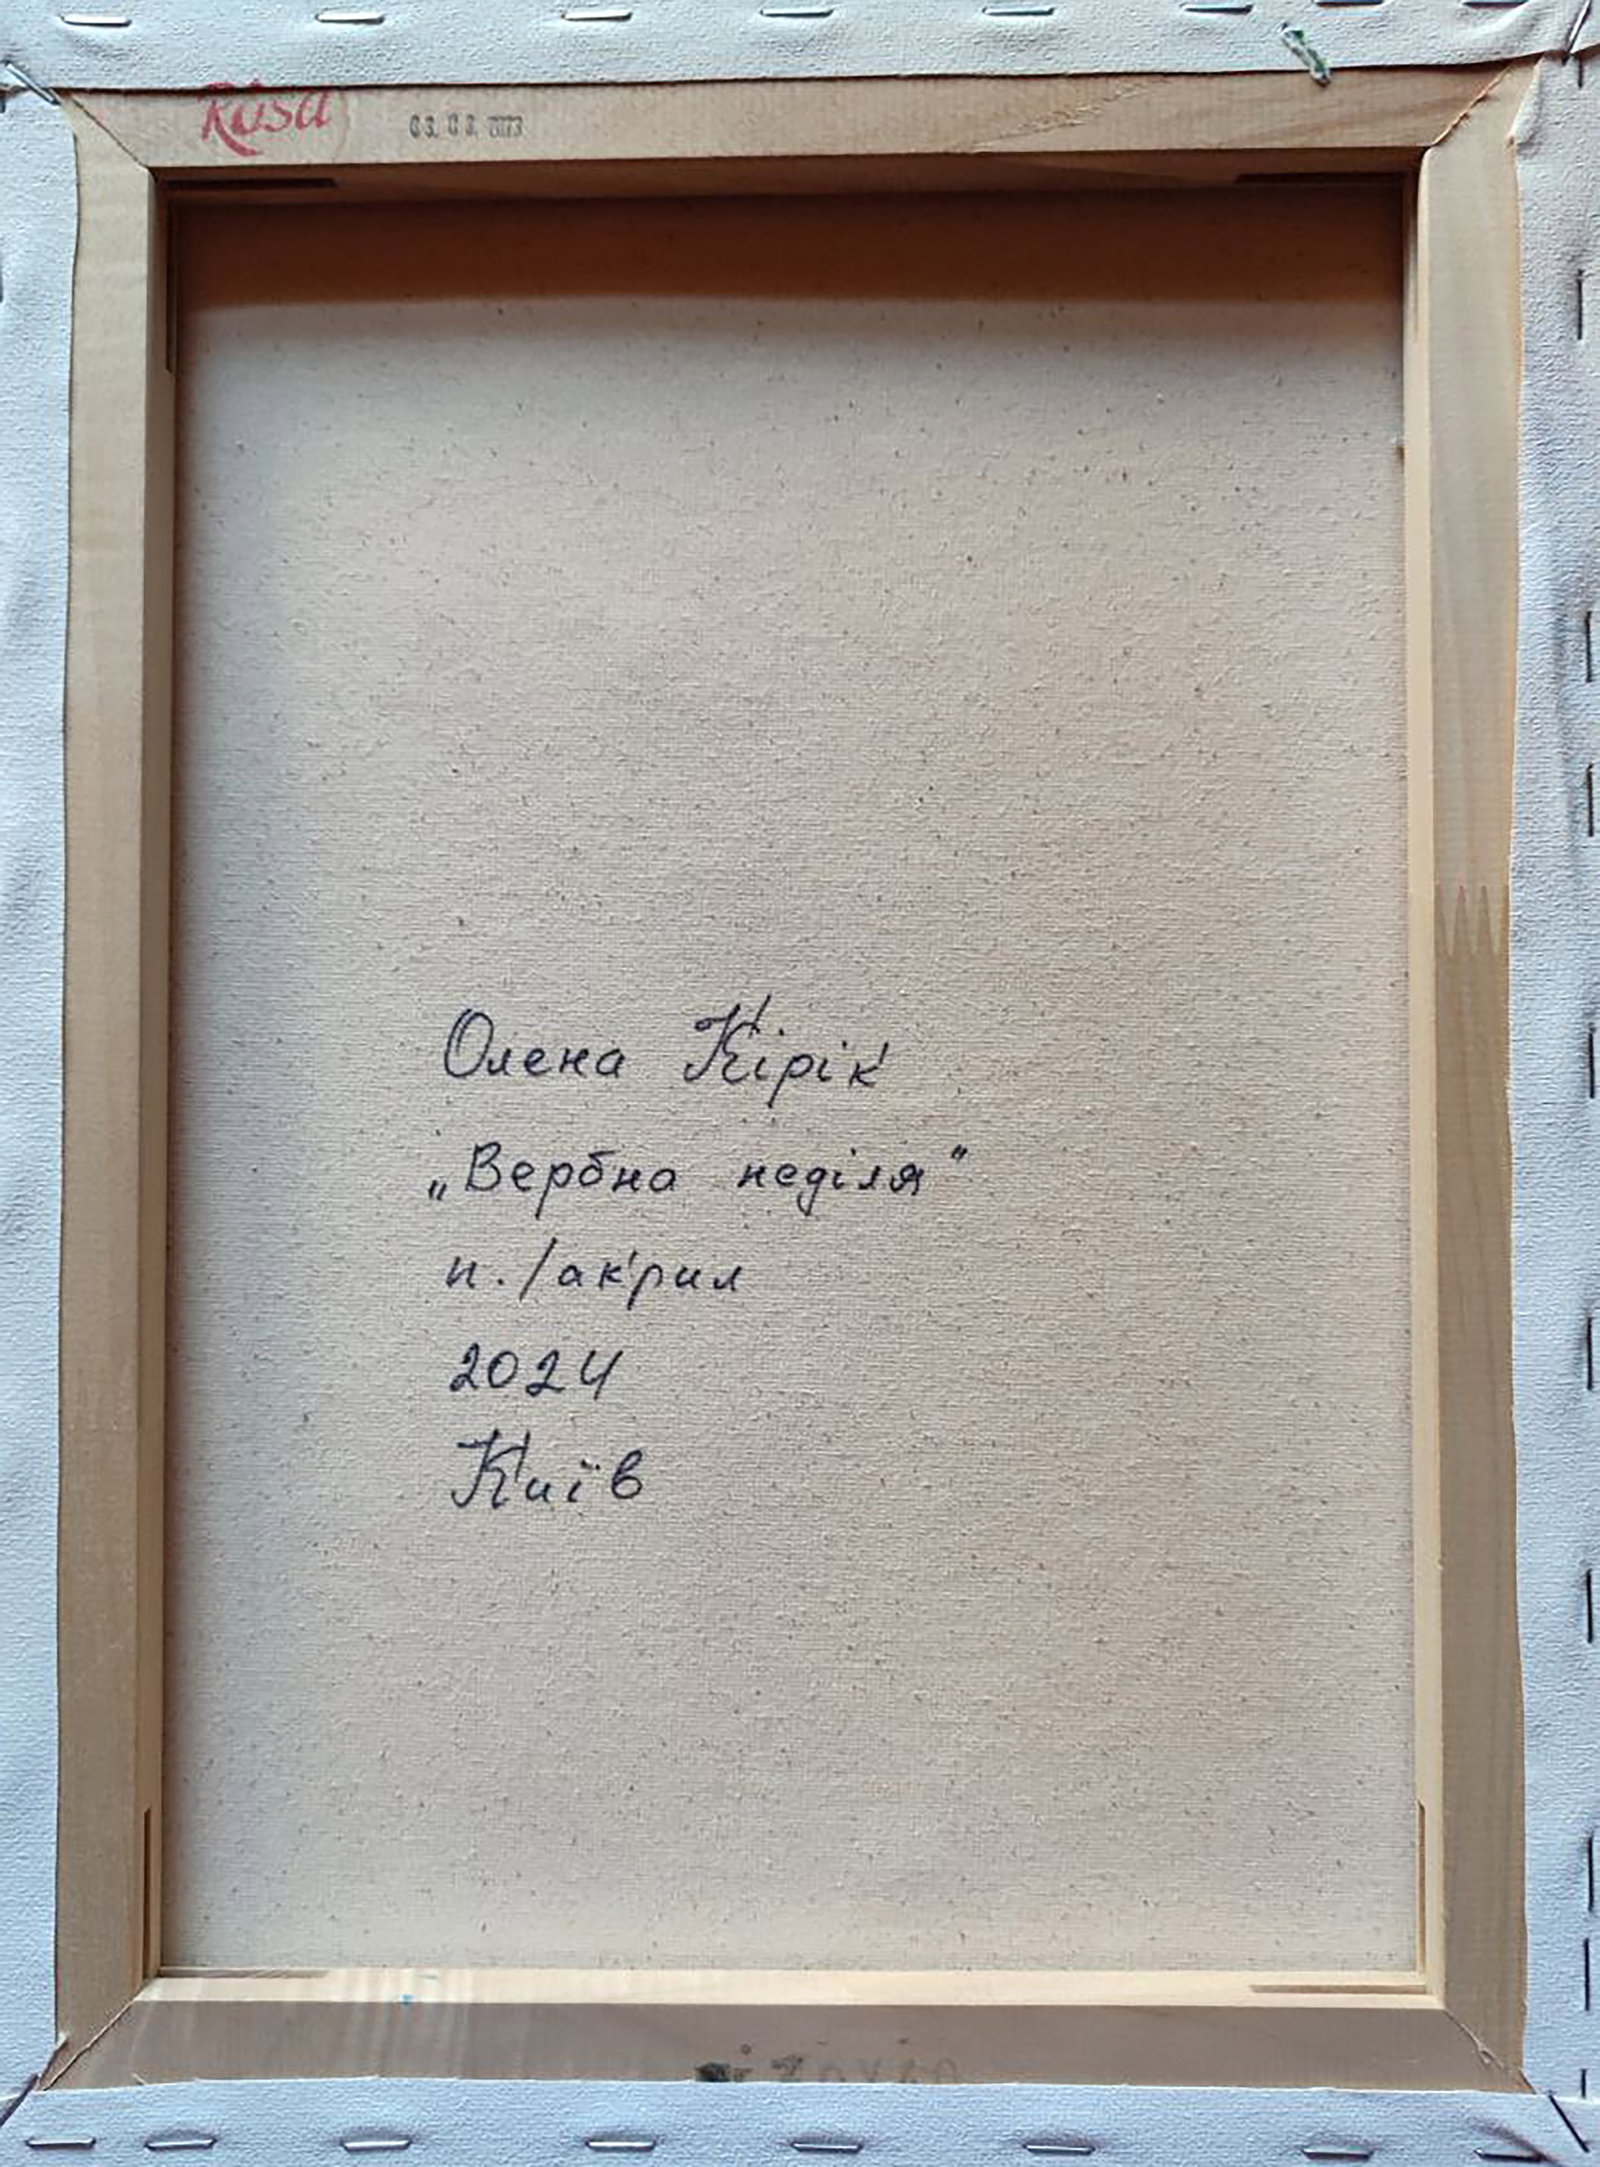 Rosa
03.03.2023
Олена Кірік
„Вербна неділя“
п./акрил
2024
Київ